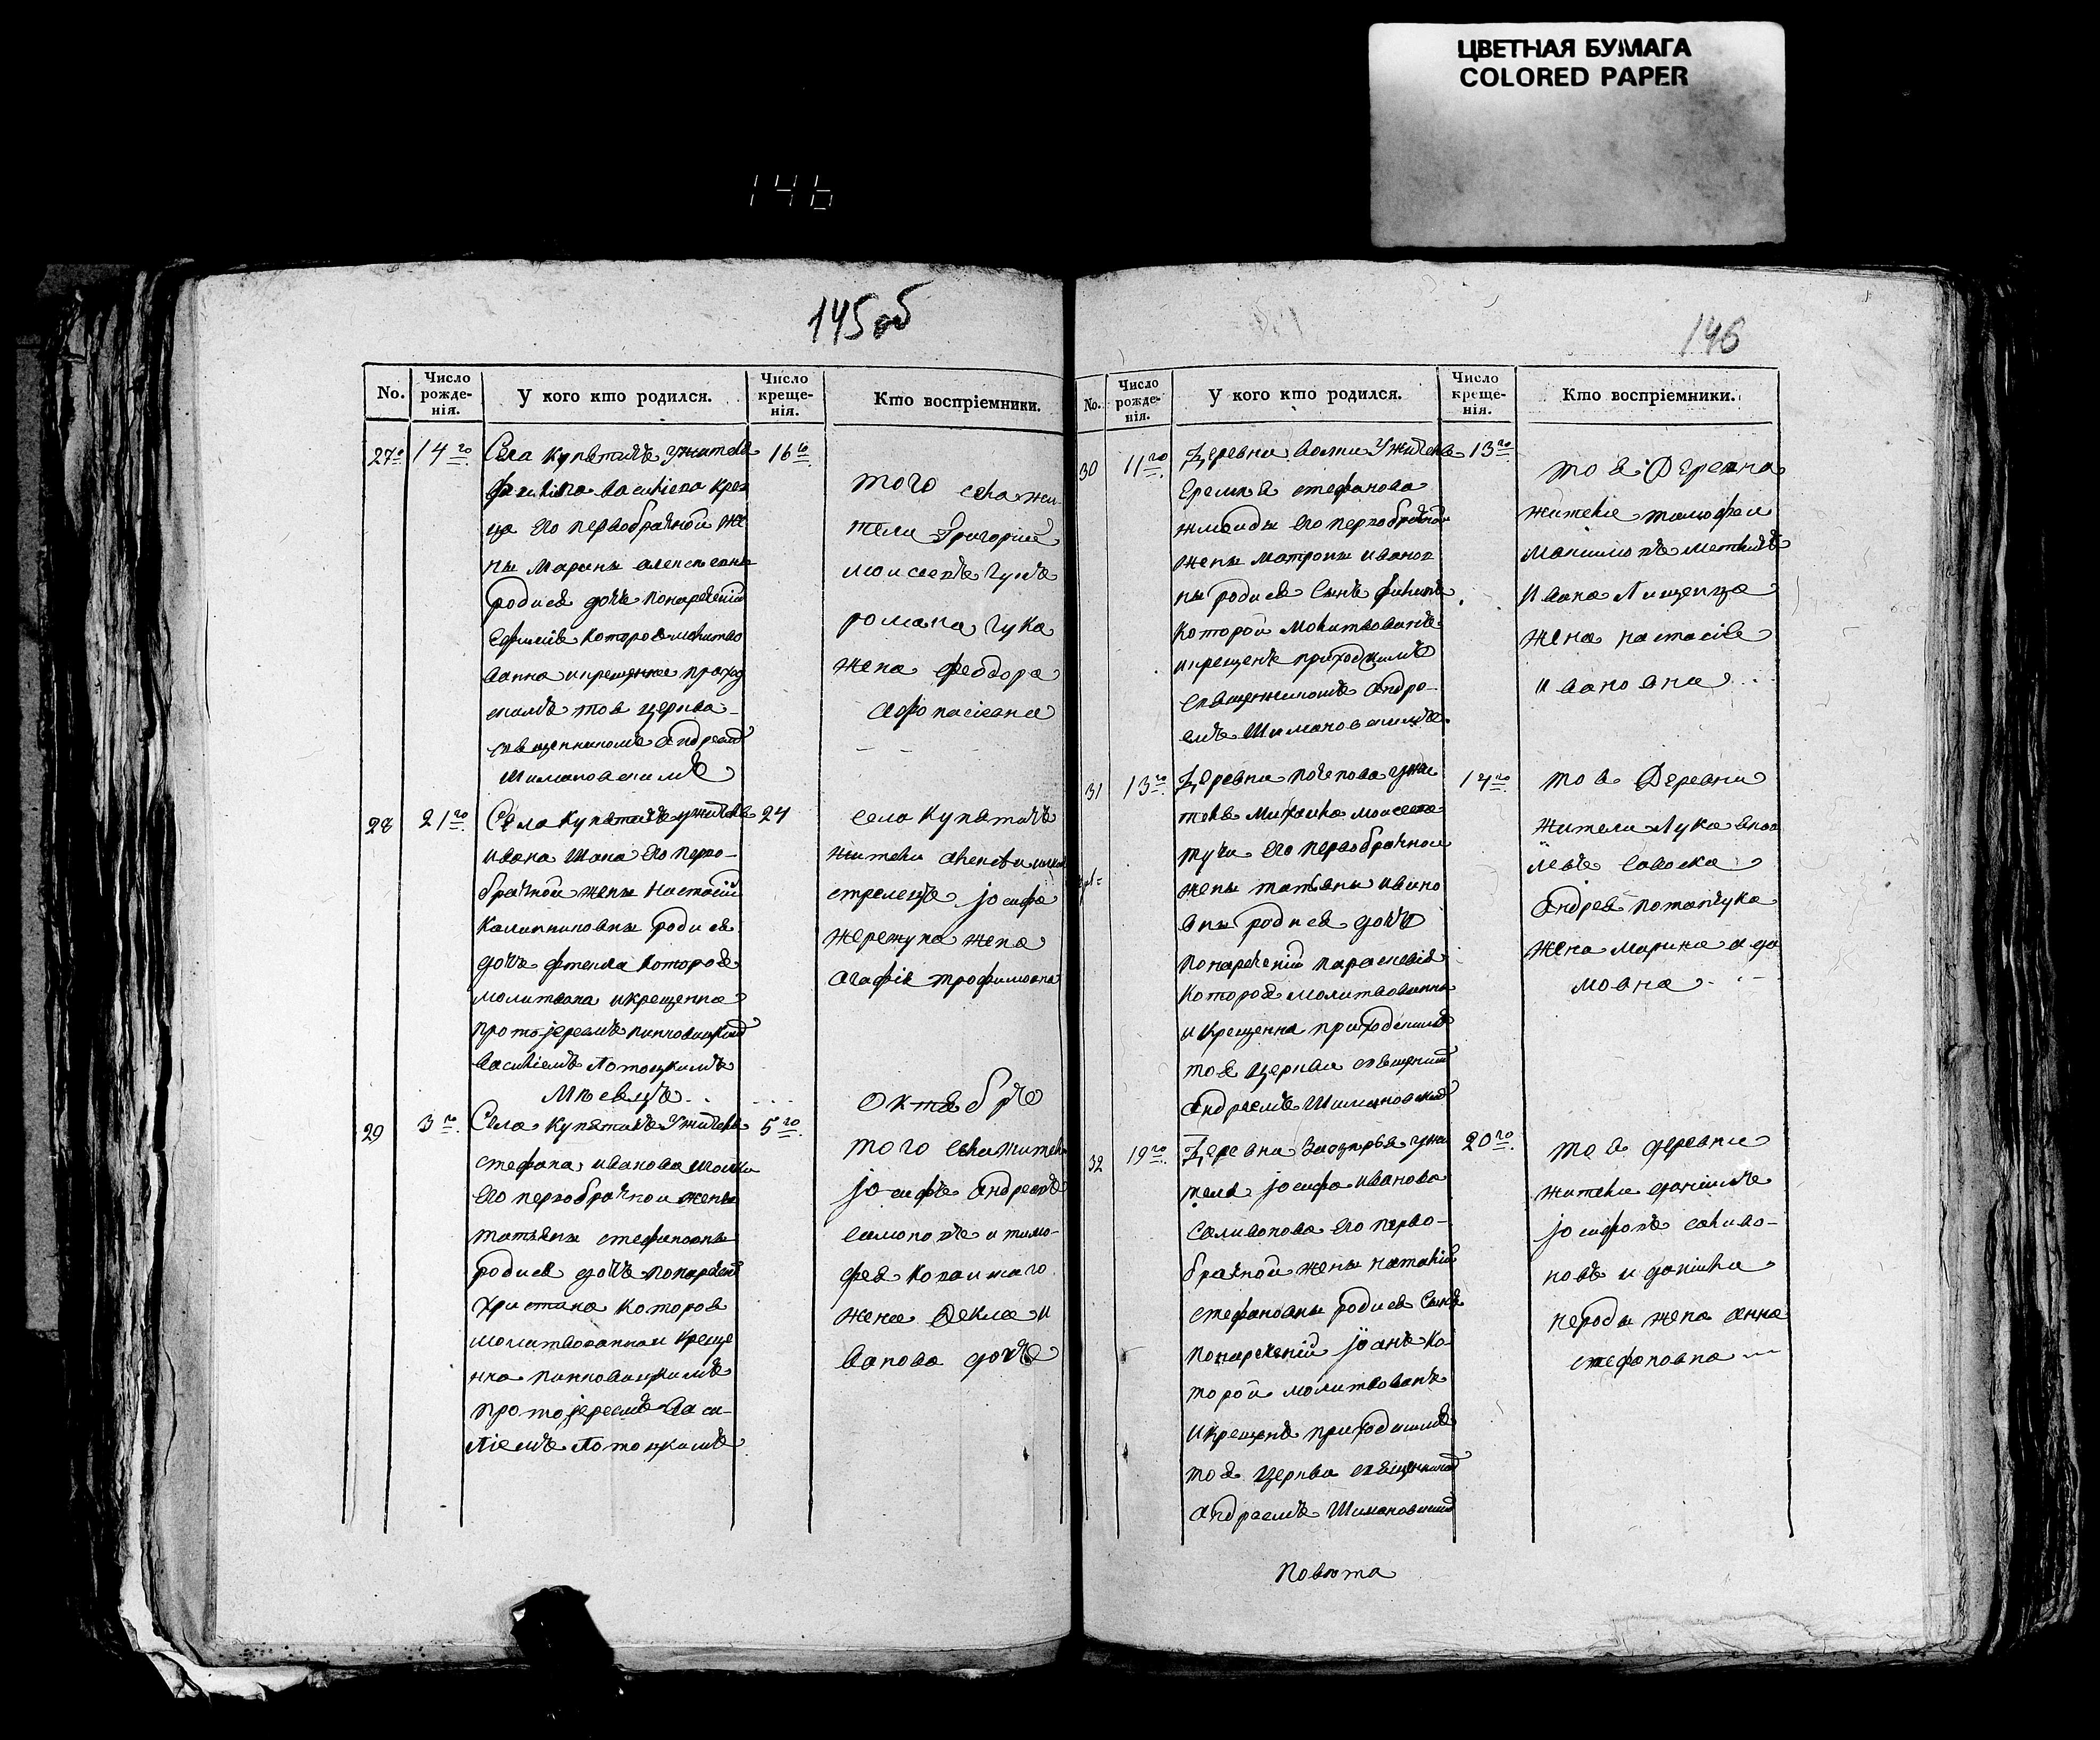 ЦВЕТНАЯ БУМАГА
COLORED PAPER
146
145 об
No.
Число рожде-нія.
У кого кто родился.
Число креще-нія.
Кто воспріемники.
27е
14го
Села Купятичь Ужителя
Филипа Василіева
ца его первобрачной же
ны Марины Алексеевны
родися дочь понареченіи
Ефимія которо молитво
ванна и крещенна приход
скимъ тоя церкви
священникомъ Андреем
Шимановскимъ
16го
того села жи
тели Григорій
Моисеевъ Гукъ
Романа Гука
жена Феодора
Афонасіевна
28
21го
Села Купятичь ужителя
Ивана Шана его перво-
брачной жены Настасіи
родися
дочь Фтекла Которя
молитвана и крещенна
протоjереемъ пинковицким
Василіемъ Лотоцкимъ
24
села Купятичь
жители
стрелецъ jосифа
жена
Агафія Трофимовна
Мѣсяцъ
Октябрь
29
3го
Села Купятичь Ужителя
Стефана Иванова
его первобрачной жены
Татьяны Стефановны
родися дочь понаречені
Христина Которо
молитвованна и креще
нна пинковицкимъ
протоjереемъ Васи-
ліемъ Лотоцкимъ
5го
того села жители
jосифъ Андреевъ
и Тимо-
фея
жена Фекла И
ванова дочь
146
No.
Число рожде-нія.
У кого кто родился.
Число креще-нія.
Кто воспріемники.
30
11го
Деревни Ужителя
Еремія Стефанова
его первобрачной
жены Матроны Иванов
ны родися Сынъ Филипъ
которой Молитвованъ
и крещенъ приходскимъ
священникомъ Андре-
емъ Шимановскимъ.
13го
тоя Деревни
жители Тимофеи
Ивана Лищенца
жена Настасія
Ивановна
31
13го
Деревни Почапова ужи
теля Михаила Моисеева
его первобрачной
жены Татьяны Ивано
вны родися дочь
понареченіи Параскевія
Которя молитвованна
и Крещенна приходскимъ
тоя церкви священик
Андреемъ Шимановским
14го
тоя Деревни
жители Лука
Андрея Потапчука
жена Марина Ада
мовна
32
19го
Деревни ужи
теля jосифа Иванова
Саливонова его перво-
брачной жены Наталіи
Стефановны родися Сынъ
понареченіи jоанъ Ко
торой молитвованъ
и крещенъ приходским
тоя церкви священником
Андреемъ Шимановским
20го
тоя деревни
жители даніилъ
jосифовъ Саливо-
новъ и даніила
жена Анна
Стефановна
Повѣта